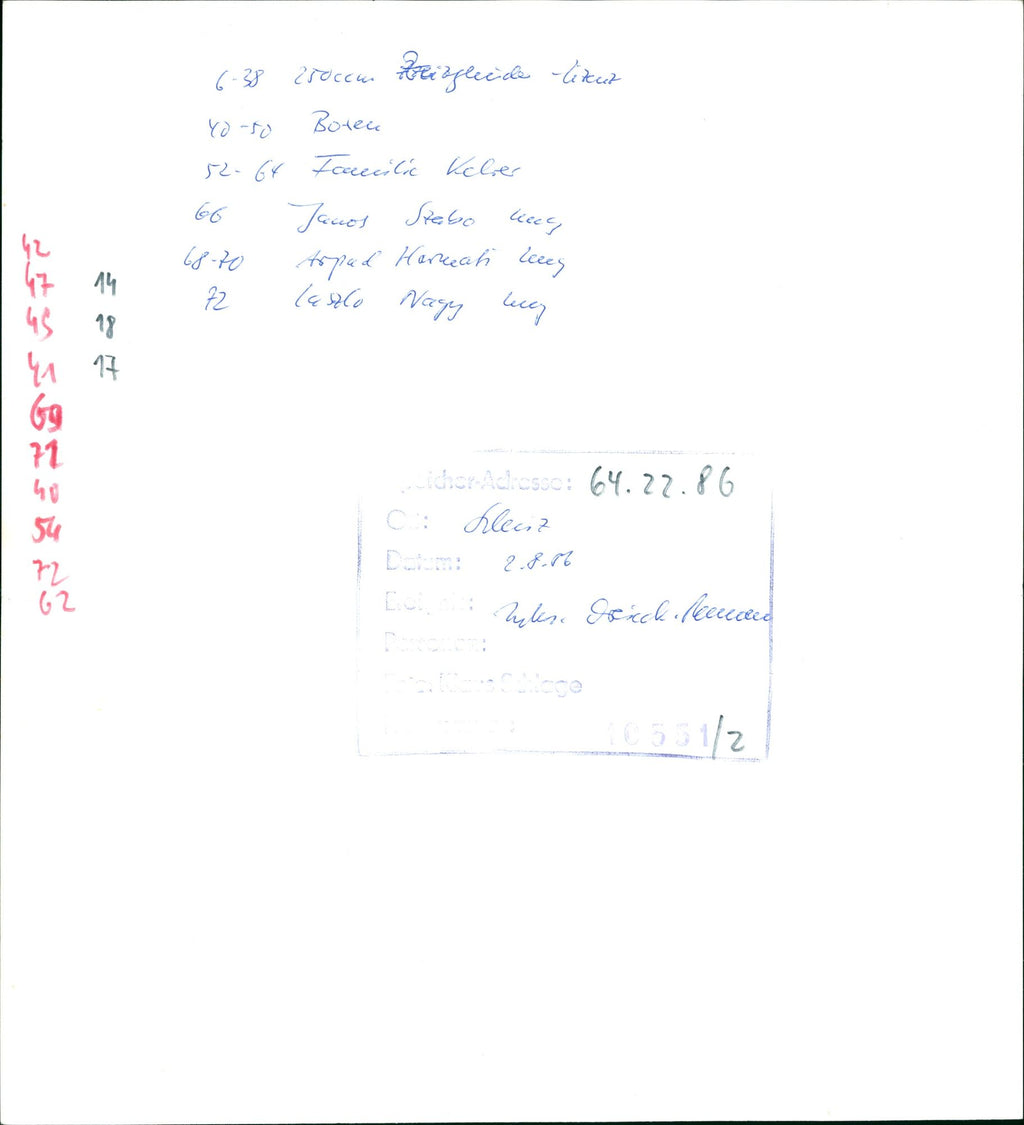 6-38 250ccm -Lizenz
40-50 Boxen
52-64 Familie
66 Janos Szabo Ung
68-70 Arpad Harmati Ung
72 Laszlo Nagy Ung
42
47 14
45 18
41 17
69
71
40
54
72
62
Speicher-Adresse: 64.22.86
Ort: Schleiz
Datum: 2.8.86
Ereignis:
Personen:
Foto: Klaus Schlage
10551/2